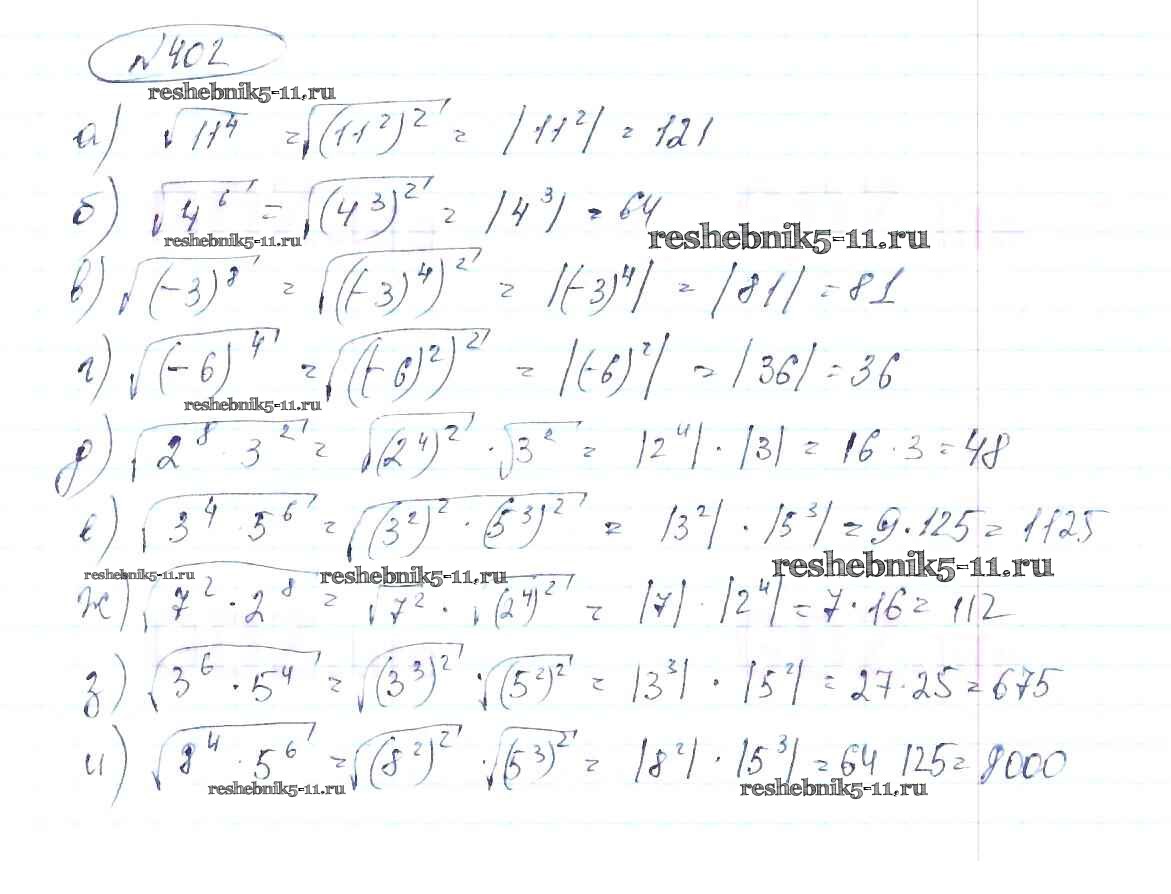 №402
reshebnik5-11.ru
а) √11⁴ = √(11²)² = |11²| = 121
б) √4⁶ = √(4³)² = |4³| = 64
reshebnik5-11.ru reshebnik5-11.ru
в) √(-3)⁸ = √((-3)⁴)² = |(-3)⁴| = |81| = 81
г) √(-6)⁴ = √((-6)²)² = |(-6)²| = |36| = 36
reshebnik5-11.ru
д) √2⁸ · 3² = √(2⁴)² · √3² = |2⁴| · |3| = 16 · 3 = 48
е) √3⁴ · 5⁶ = √(3²)² · (5³)² = |3²| · |5³| = 9 · 125 = 1125
reshebnik5-11.ru reshebnik5-11.ru reshebnik5-11.ru
ж) √7² · 2⁸ = √7² · √(2⁴)² = |7| · |2⁴| = 7 · 16 = 112
з) √3⁶ · 5⁴ = √(3³)² · √(5²)² = |3³| · |5²| = 27 · 25 = 675
и) √8⁴ · 5⁶ = √(8²)² · √(5³)² = |8²| · |5³| = 64 125 = 8000
reshebnik5-11.ru reshebnik5-11.ru